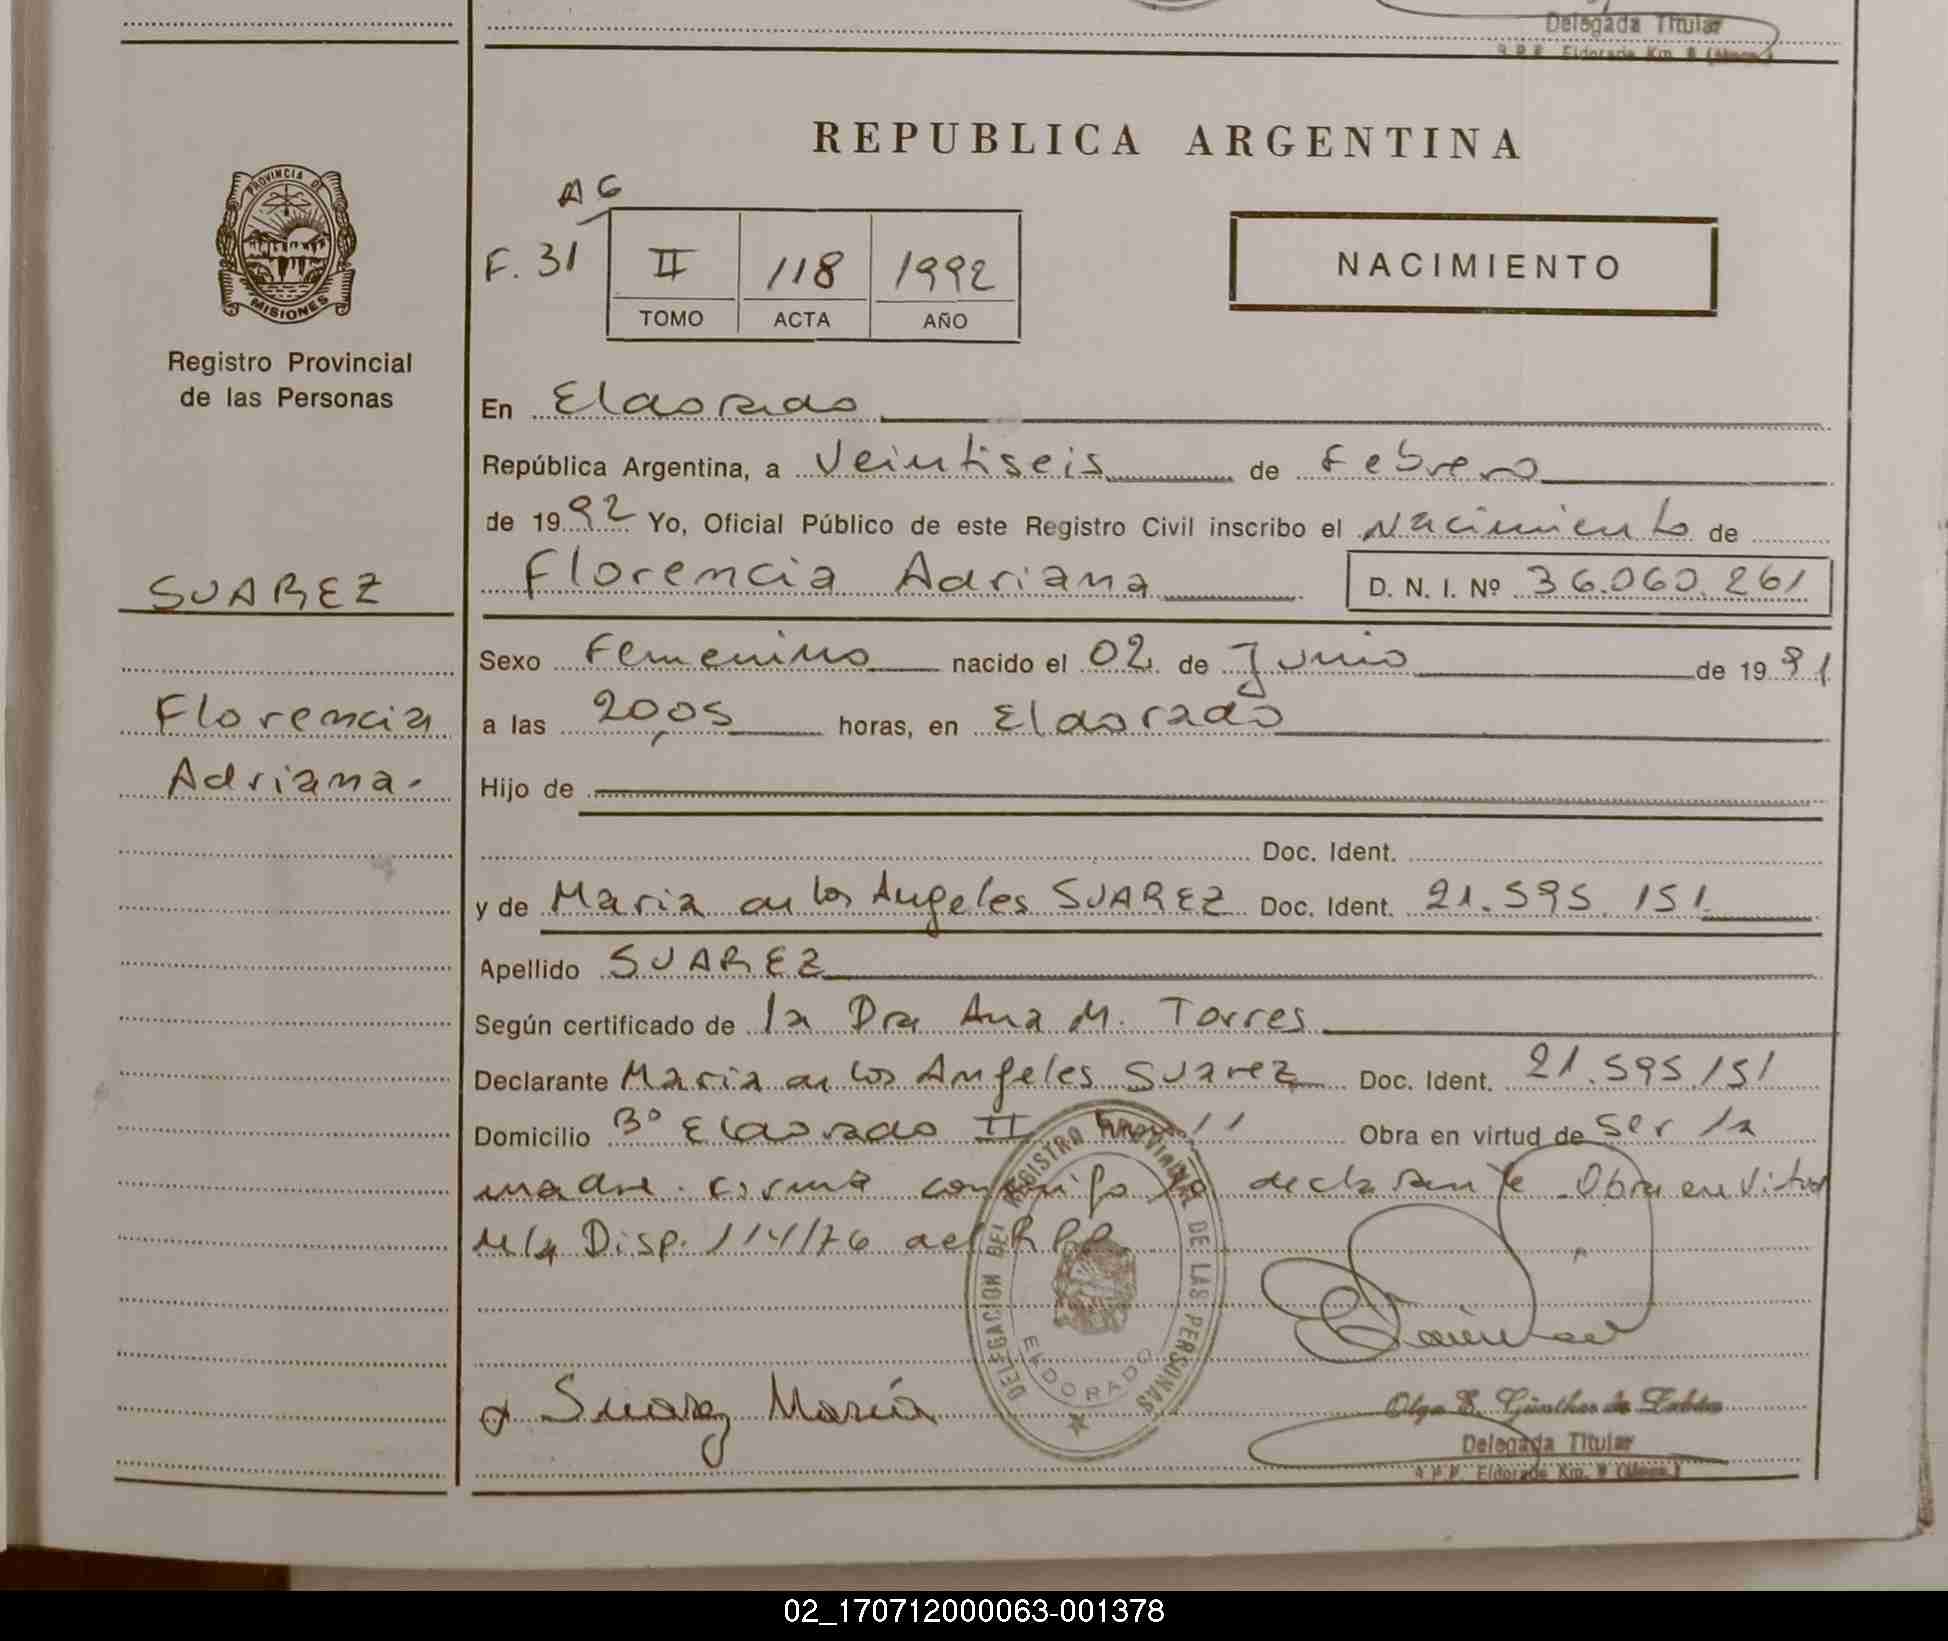 Delegada Titular
R.P.P. Eldorado Km. 9 (Mnes.)
PROVINCIA DE
MISIONES
Registro Provincial
de las Personas
SUAREZ
Florencia
Adriana.
REPUBLICA ARGENTINA
A6
F. 31
II 118 1992
TOMO ACTA AÑO
NACIMIENTO
En Eldorado
República Argentina, a Veintiseis de Febrero
de 1992 Yo, Oficial Público de este Registro Civil inscribo el Nacimiento de
Florencia Adriana D. N. I. Nº 36.060.261
Sexo Femenino nacido el 02 de Junio de 1991
a las 20,05 horas, en Eldorado
Hijo de
Doc. Ident.
y de Maria de los Angeles SUAREZ Doc. Ident. 21.595.151
Apellido SUAREZ
Según certificado de la Dra Ana M. Torres
Declarante Maria de los Angeles Suarez Doc. Ident. 21.595.151
Domicilio Bº Eldorado II Km 11 Obra en virtud de ser la
madre. Firma conmigo la declarante. Obra en virtud
de la Disp. 114/76 del RPP
DELEGACION DEL REGISTRO PROVINCIAL DE LAS PERSONAS
ELDORADO
Suarez María
Olga E. Günther de
Delegada Titular
R.P.P. Eldorado Km. 9 (Mnes.)
02_170712000063-001378